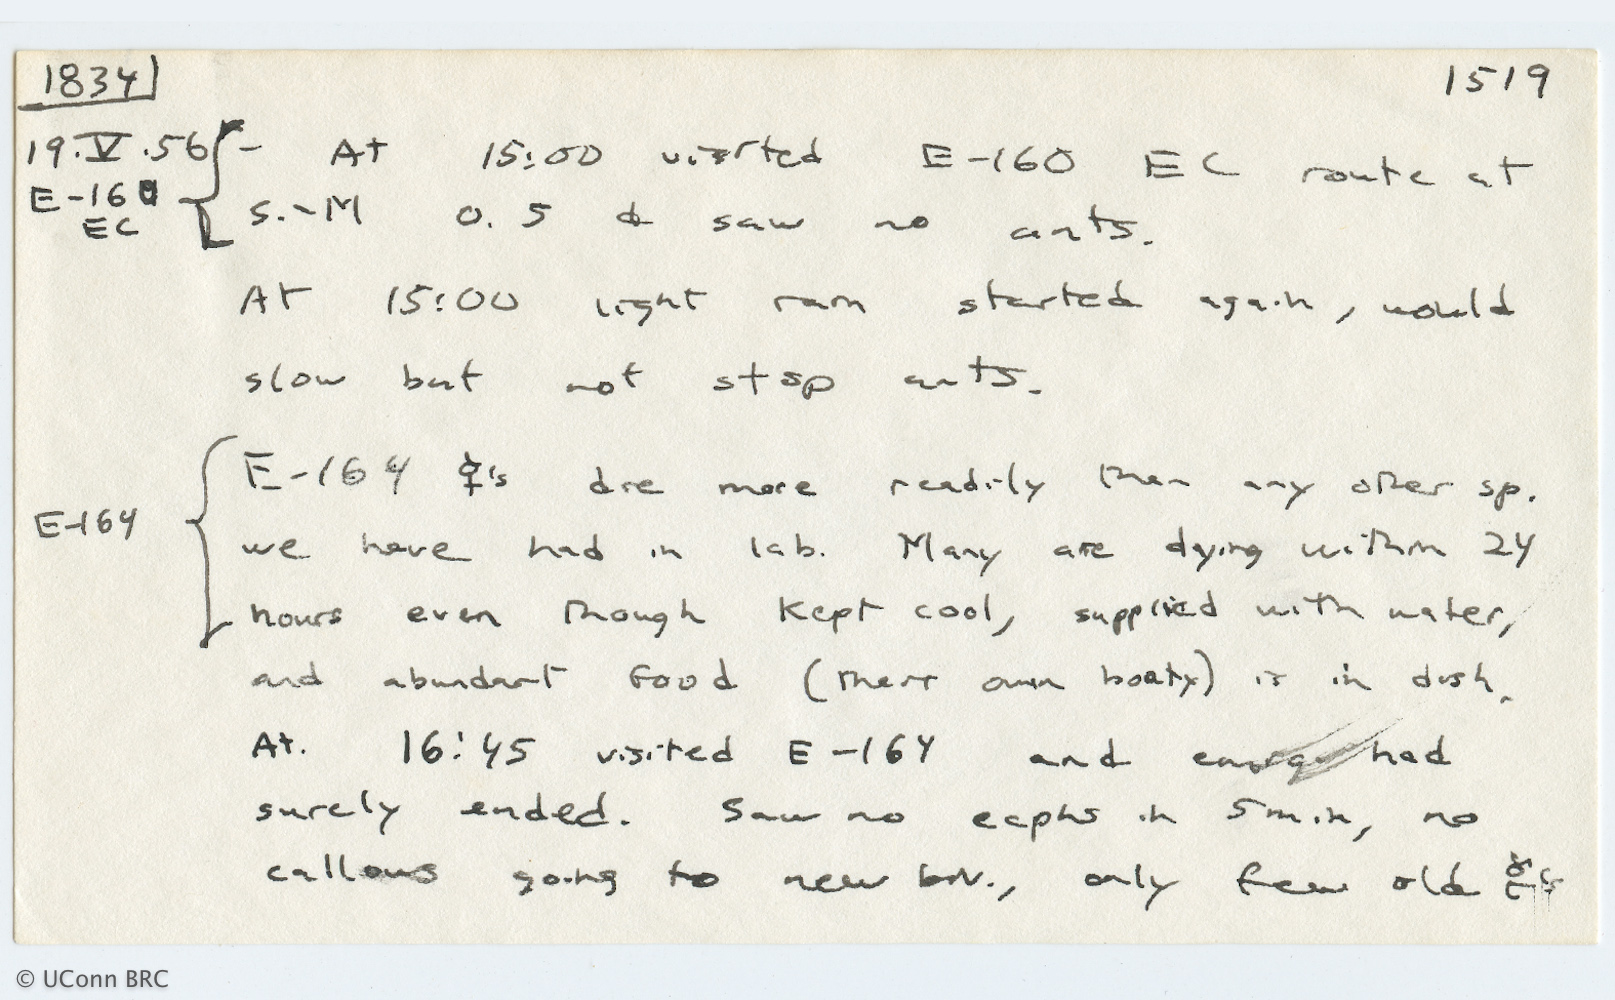 1834 1519
19.V.56 - At 15:00 visited E-160 EC route at
E-160 S.-M 0.5 & saw no ants.
EC
At 15:00 light rain started again, would
slow but not stop ants.
E-164 ☿'s die more readily than any other sp.
E-164 we have had in lab. Many are dying within 24
hours even though kept cool, supplied with water,
and abundant food (their own booty) is in dish.
At. 16:45 visited E-164 and had
surely ended. Saw no ecphs in 5 min, no
callows going to new biv., only few old
© UConn BRC